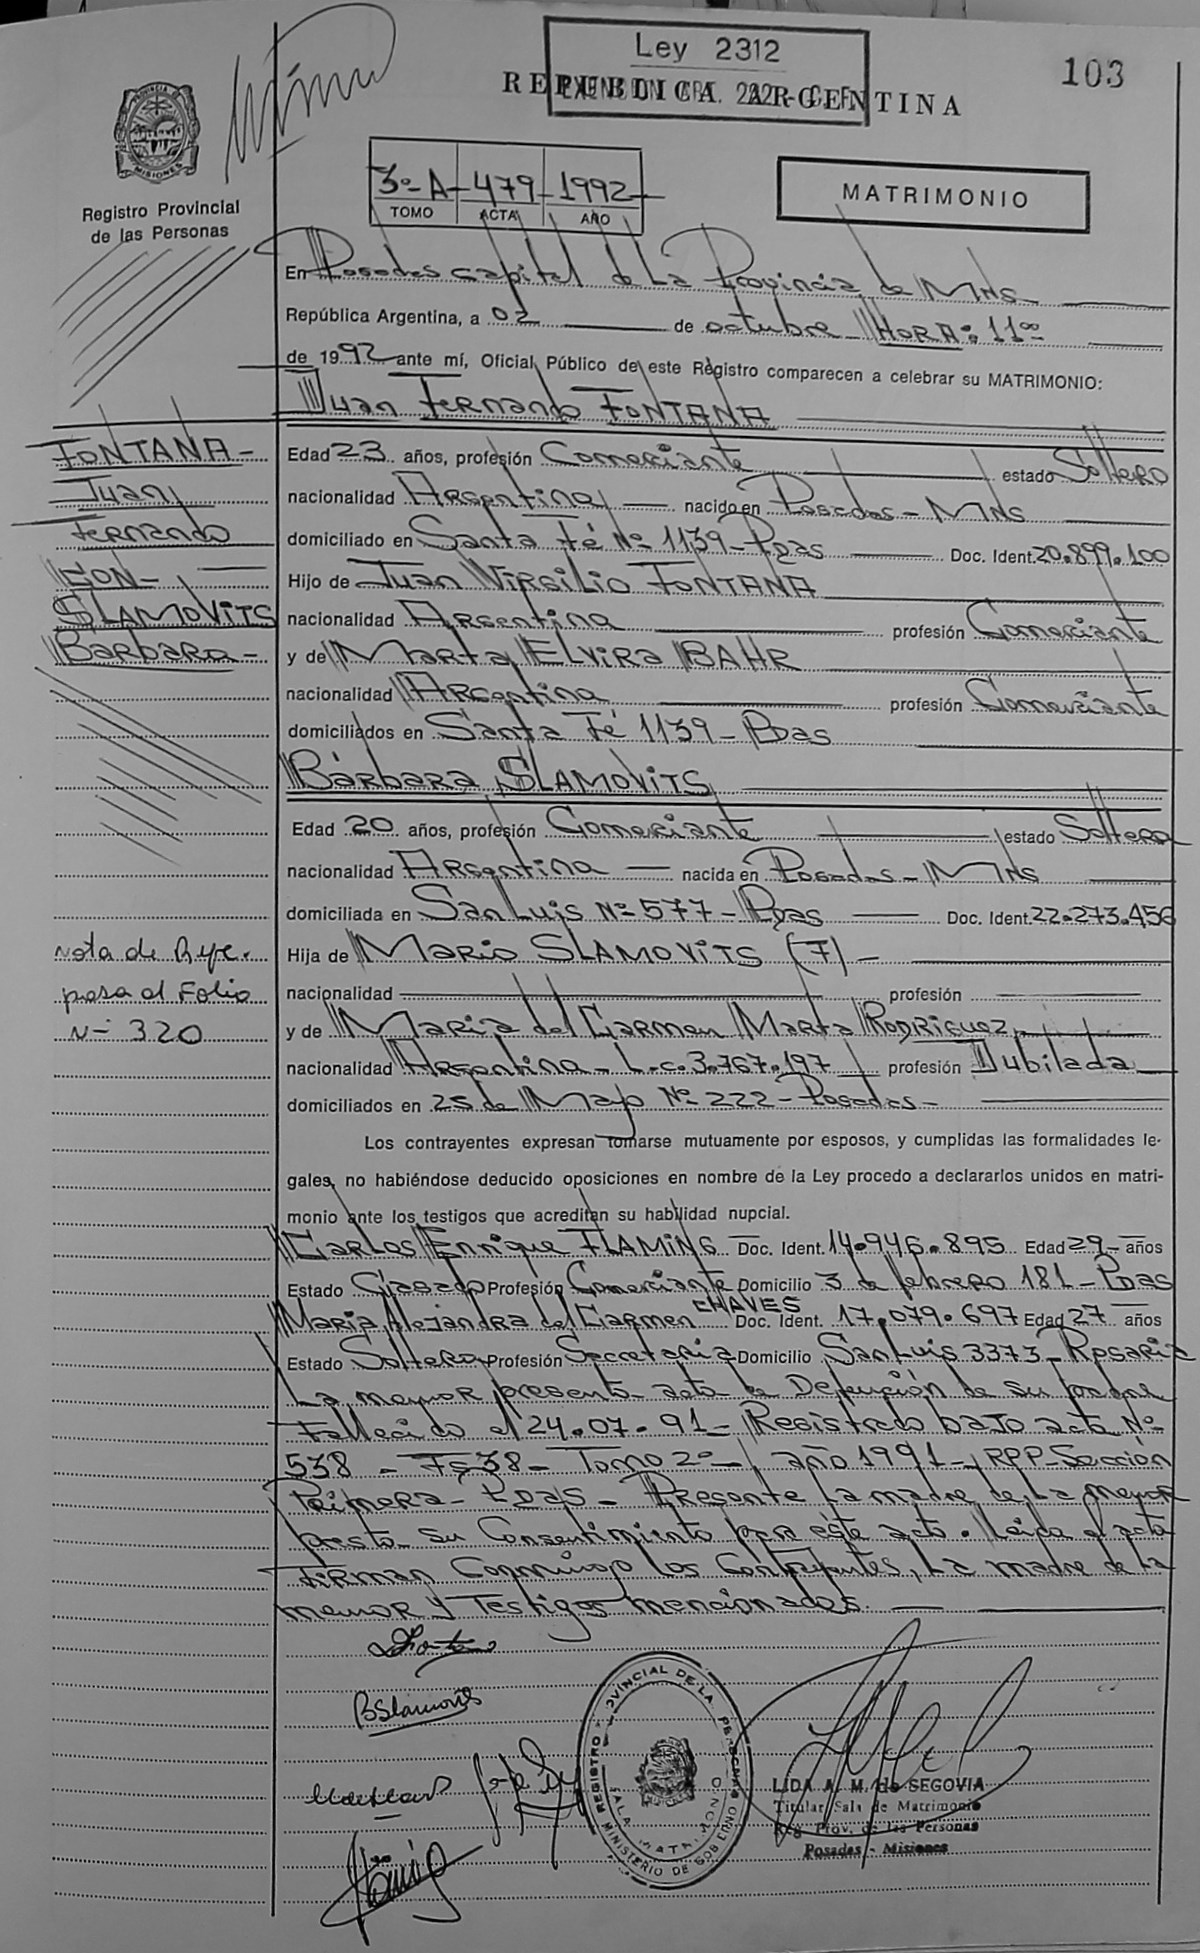 Ley 2312
103
REPUBLICA ARGENTINA
MISIONES
Registro Provincial
de las Personas
3º A - 479 - 1992
TOMO ACTA AÑO
MATRIMONIO
En Posadas capital de La Provincia de MNS
República Argentina, a 02 de octubre HORA: 11ºº
de 1992 ante mí, Oficial Público de este Registro comparecen a celebrar su MATRIMONIO:
Juan Fernando FONTANA
FONTANA -
Juan
Fernando
CON -
SLAMOVITS
Bárbara -
Edad 23 años, profesión Comerciante estado Soltero
nacionalidad Argentina nacido en Posadas - MNS
domiciliado en Santa Fé Nº 1139 - Pdas Doc. Ident. 20.899.100
Hijo de Juan Virgilio FONTANA
nacionalidad Argentina profesión Comerciante
y de Marta Elvira BAHR
nacionalidad Argentina profesión Comerciante
domiciliados en Santa Fé 1139 - Pdas
Bárbara SLAMOVITS
Edad 20 años, profesión Comerciante estado Soltera
nacionalidad Argentina nacida en Posadas - MNS
domiciliada en San Luis Nº 577 - Pdas Doc. Ident. 22.273.456
Hija de Mario SLAMOVITS (F) -
nacionalidad profesión
y de Maria del Carmen Marta RODRIGUEZ
nacionalidad Argentina - L.C. 3.767.197 profesión Jubilada
domiciliados en 25 de Mayo Nº 222 - Posadas -
Nota de Ref.
pasa al Folio
Nº 320
Los contrayentes expresan tomarse mutuamente por esposos, y cumplidas las formalidades le-
gales, no habiéndose deducido oposiciones en nombre de la Ley procedo a declararlos unidos en matri-
monio ante los testigos que acreditan su habilidad nupcial.
Carlos Enrique FLAMING Doc. Ident. 14.946.895 Edad 29 años
Estado Casado Profesión Comerciante Domicilio 3 de febrero 181 - Pdas
Maria Alejandra del Carmen CHAVES Doc. Ident. 17.079.697 Edad 27 años
Estado Soltera Profesión Secretaria Domicilio San Luis 3373 - Rosario
La menor presenta acta de Defunción de su padre
Fallecido el 24.07.91 - Registrado bajo acta Nº
538 - Fº 38 - Tomo 2º - año 1991 - RPP - Sección
Primera - Pdas - Presente la madre de la menor
presta su Consentimiento para este acto. Leída el acta
Firman Conmigo los Contrayentes, La madre de la
menor y Testigos mencionados.
BSlamovits
REGISTRO PROVINCIAL DE LAS PERSONAS
SALA MATRIMONIO
MINISTERIO DE GOBIERNO
LIDA A. M. de SEGOVIA
Titular Sala de Matrimonio
Reg. Prov. de las Personas
Posadas - Misiones